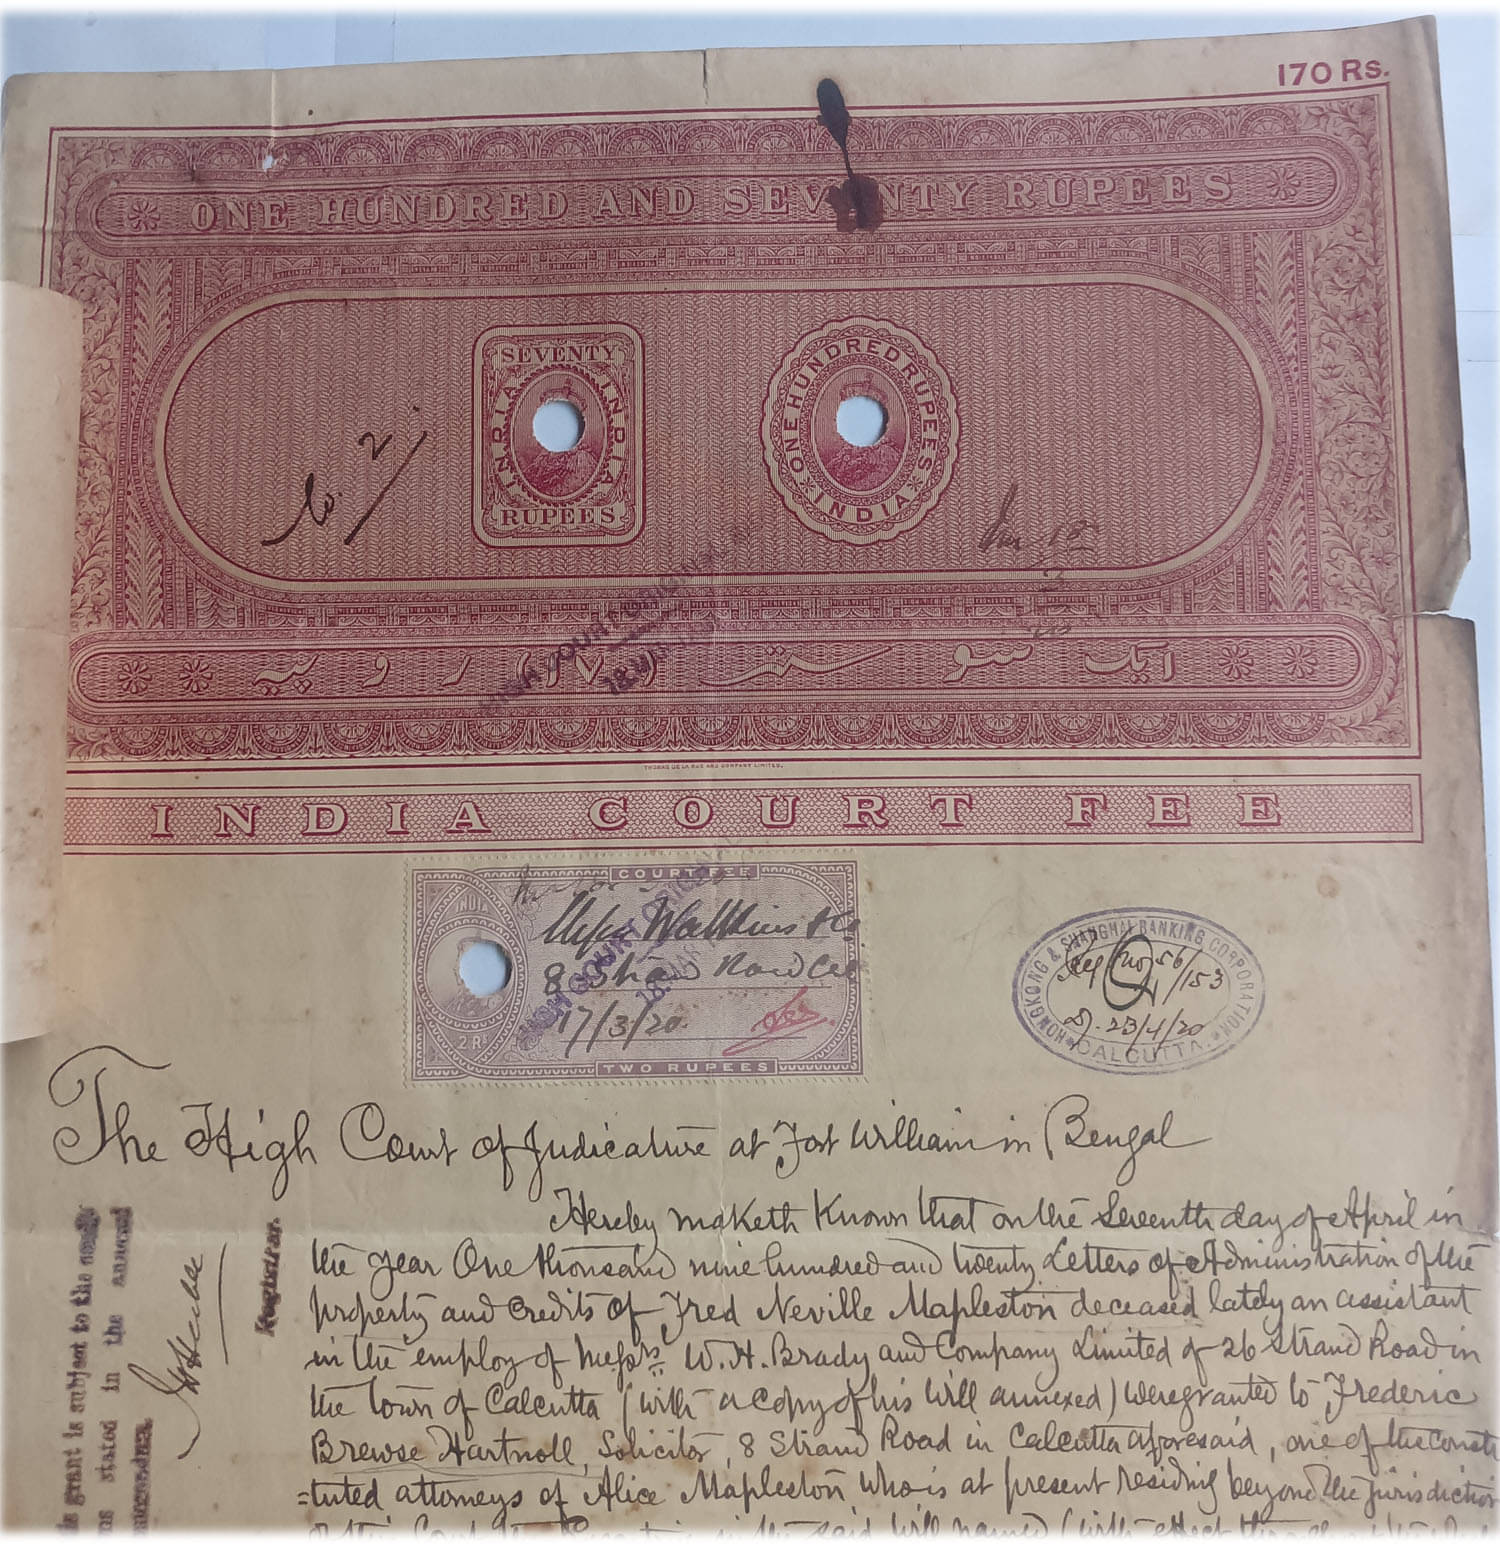 170 Rs.
ONE HUNDRED AND SEVENTY RUPEES
SEVENTY
INDIA INDIA
RUPEES
ONE HUNDRED RUPEES
INDIA
HIGH COURT ORIGINAL
18 MAR
ایک سو ستر ۱۷۰ روپیہ
THOMAS DE LA RUE AND COMPANY LIMITED.
INDIA COURT FEE
COURT FEE
INDIA
Watkins & Co
8 Strand Road Cal
17/3/20
HIGH COURT ORIGINAL
18 MAR
2 Rs
TWO RUPEES
HONGKONG & SHANGHAI BANKING CORPORATION
No 56/153
D. 23/4/20
CALCUTTA.
The High Court of Judicature at Fort William in Bengal
Hereby maketh Known that on the Seventh day of April in
the year One thousand nine hundred and twenty Letters of Administration of the
property and credits of Fred Neville Mapleston deceased lately an assistant
in the employ of Messrs W. H. Brady and Company Limited of 26 Strand Road in
the town of Calcutta (with a copy of his Will annexed) were granted to Frederic
Brewse Hartnoll, Solicitor, 8 Strand Road in Calcutta aforesaid, one of the consti
=tuted attorneys of Alice Mapleston who is at present residing beyond the jurisdiction
in the said Will named (with effect
grant is subject to the
stated in the annexed
Registrar.